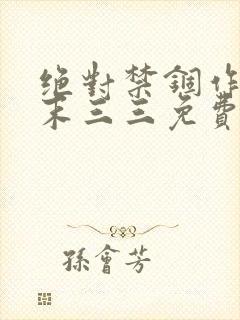 绝對禁錮作
末三三免費
孫會芳